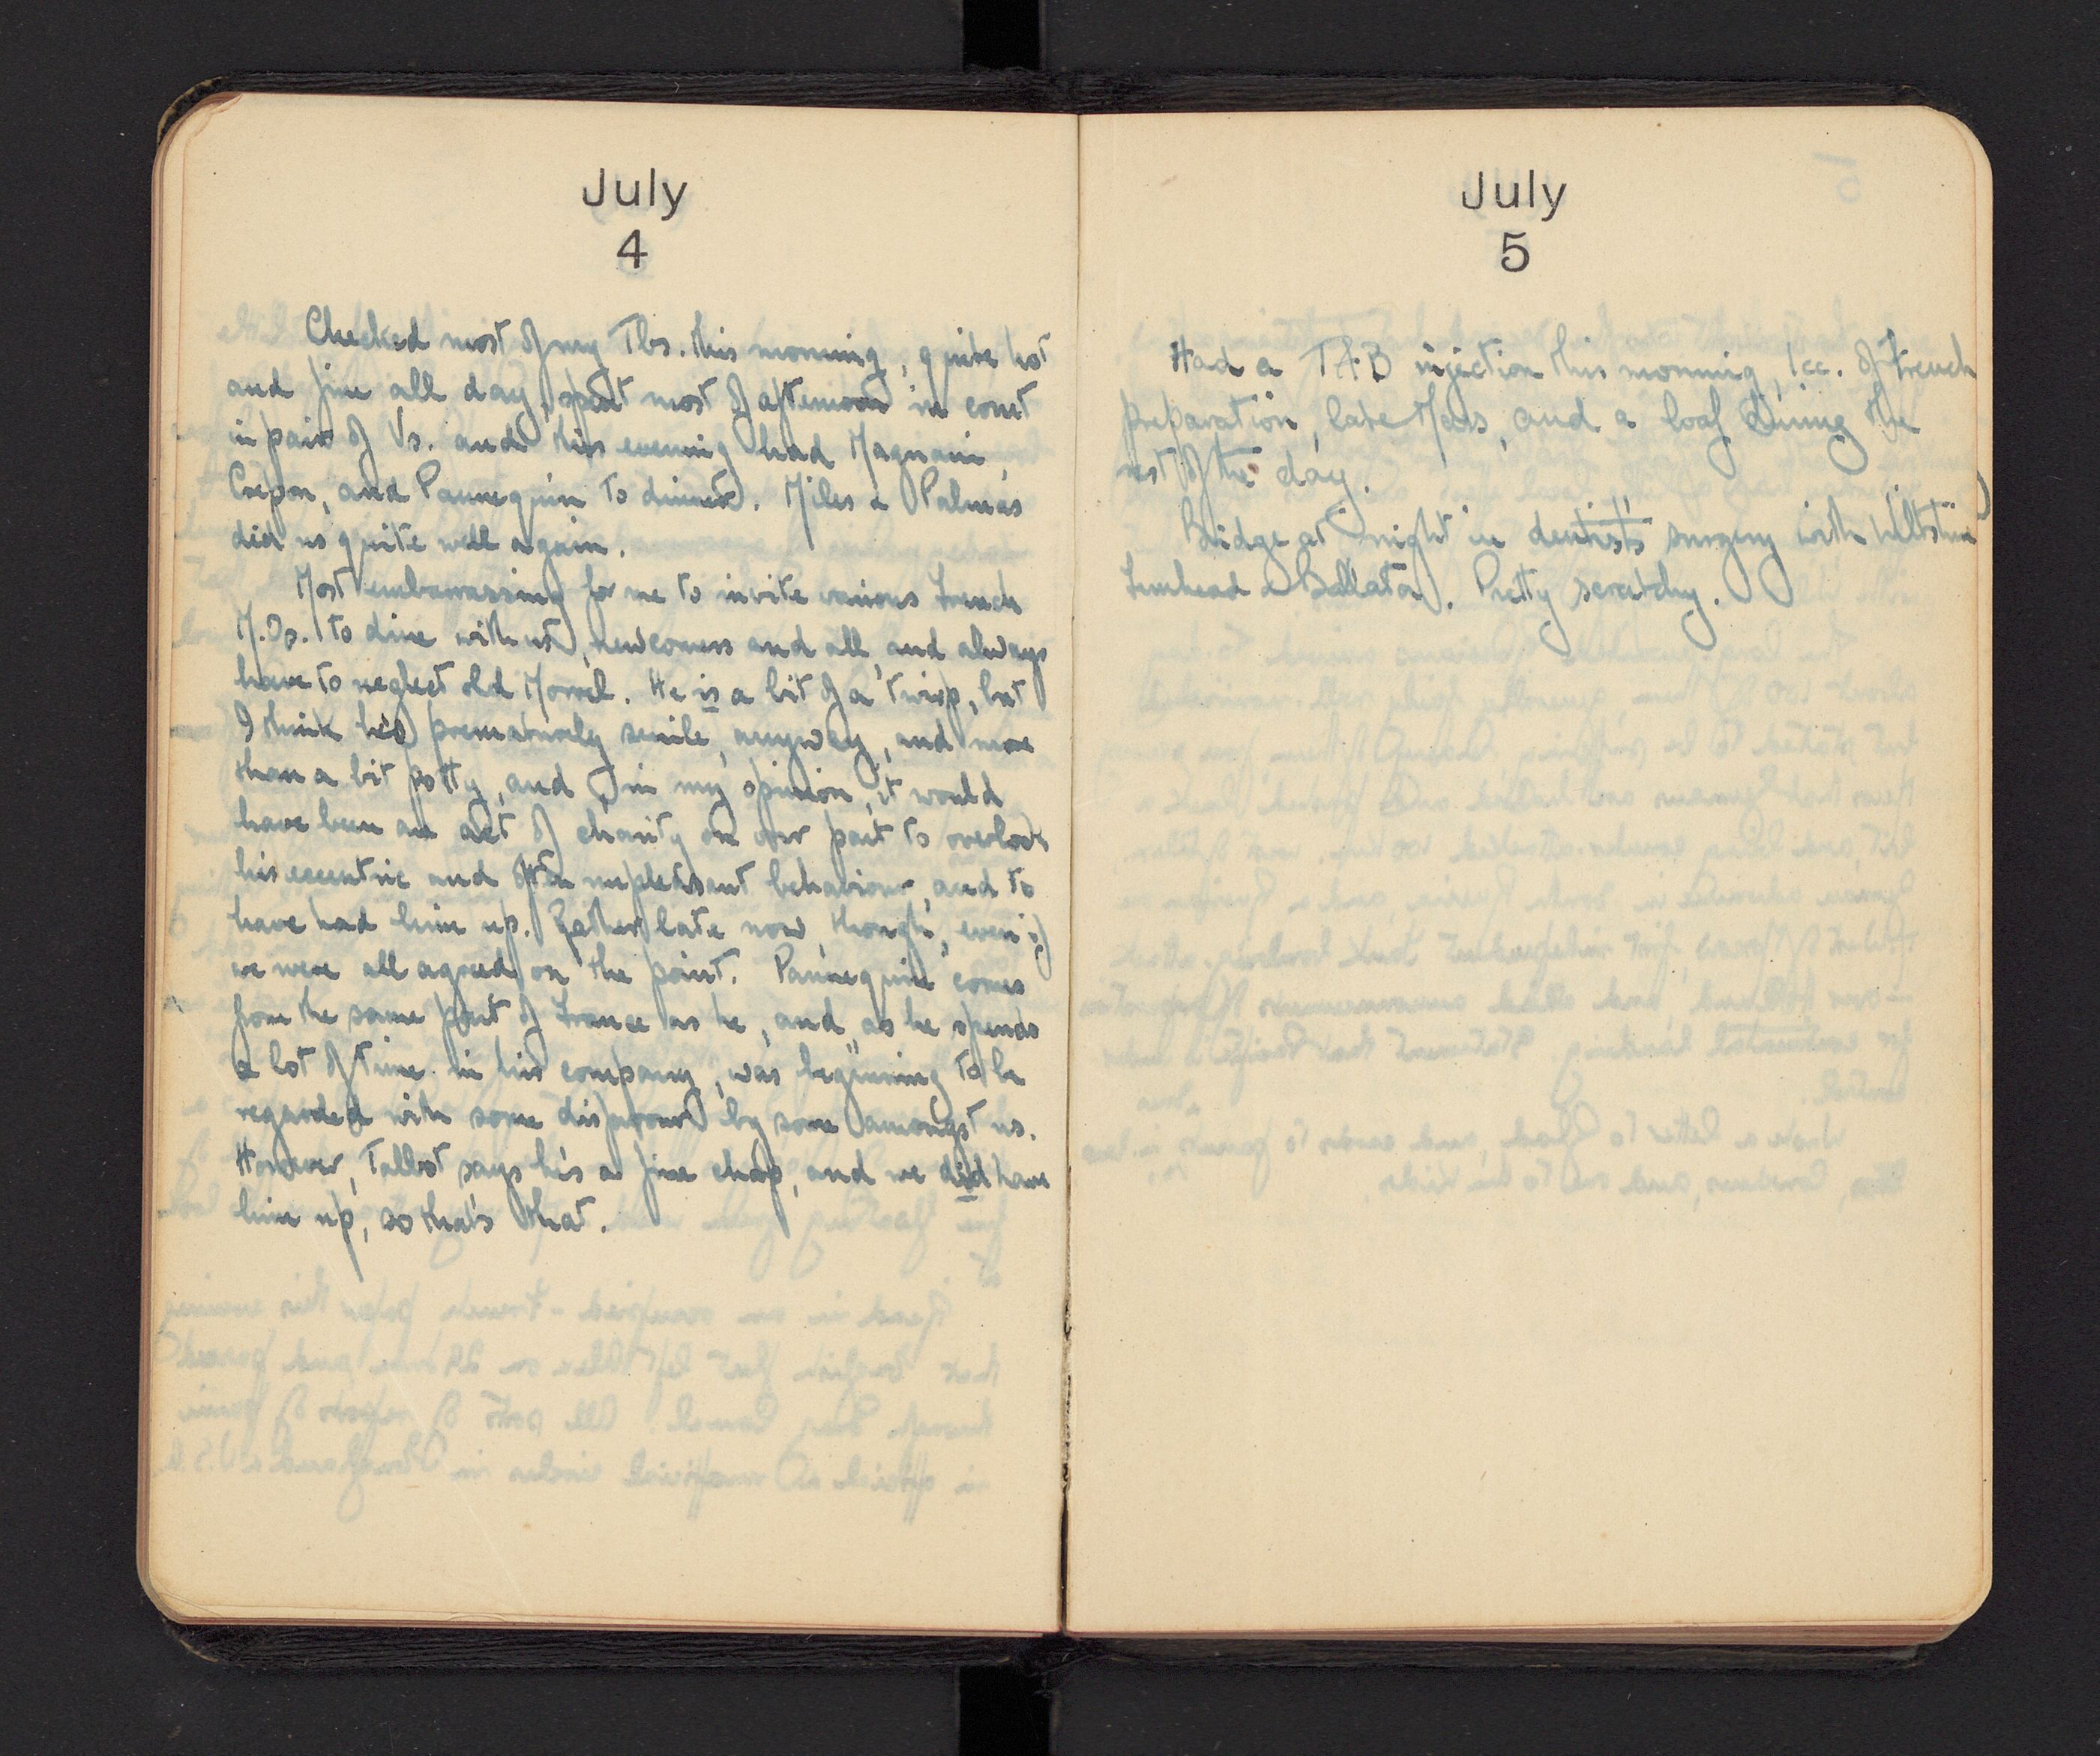 July
4
Checked most of my Tbs. this morning, quite hot
and fine all day, spent most of afternoon in court
in pair of Vs. and this evening had Magnani,
Crepin, and Pannequin to dinner. Miles & Palmas
did us quite well again.
Most embarrassing for me to invite various French
M.Os. to dine with us, newcomers and all, and always
have to neglect old Morel. He is a bit of a twirp, but
I think he's prematurely senile, anyway, and more
than a bit potty, and, in my opinion, it would
have been an act of charity on our part to overlook
his eccentric and often unpleasant behaviour, and to
have had him up. Rather late now, though, even if
we were all agreed on the point. Pannequin comes
from the same part of France as he, and, as he spends
a lot of time in his company, was beginning to be
regarded with some disfavour by some amongst us.
However, Talbot says he's a fine chap, and we did have
him up, so that's that.
July
5
Had a T.A.B injection this morning, 1cc. of French
preparation, late Mass, and a loaf during the
rest of the day.
Bridge at night in dentist's surgery with Wiltshire
& Ballater. Pretty scratchy.